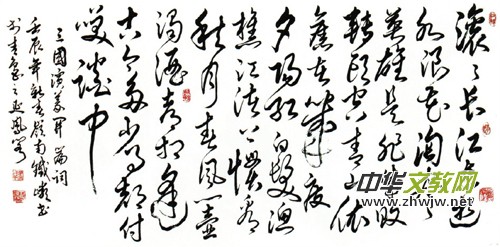 滚々长江东逝
水浪花淘尽
英雄是非成败
转头空青山依
舊在几度
夕阳红白髮渔
樵江渚上惯看
秋月春风一壶
浊酒喜相逢
古今多少事都付
笑谈中
三國演義開篇词
壬辰年 嶺南 书
中华文教网
www.zhwjw.net